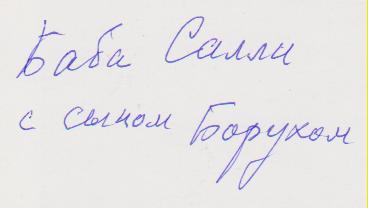 Баба Салли
с сыном Борухом